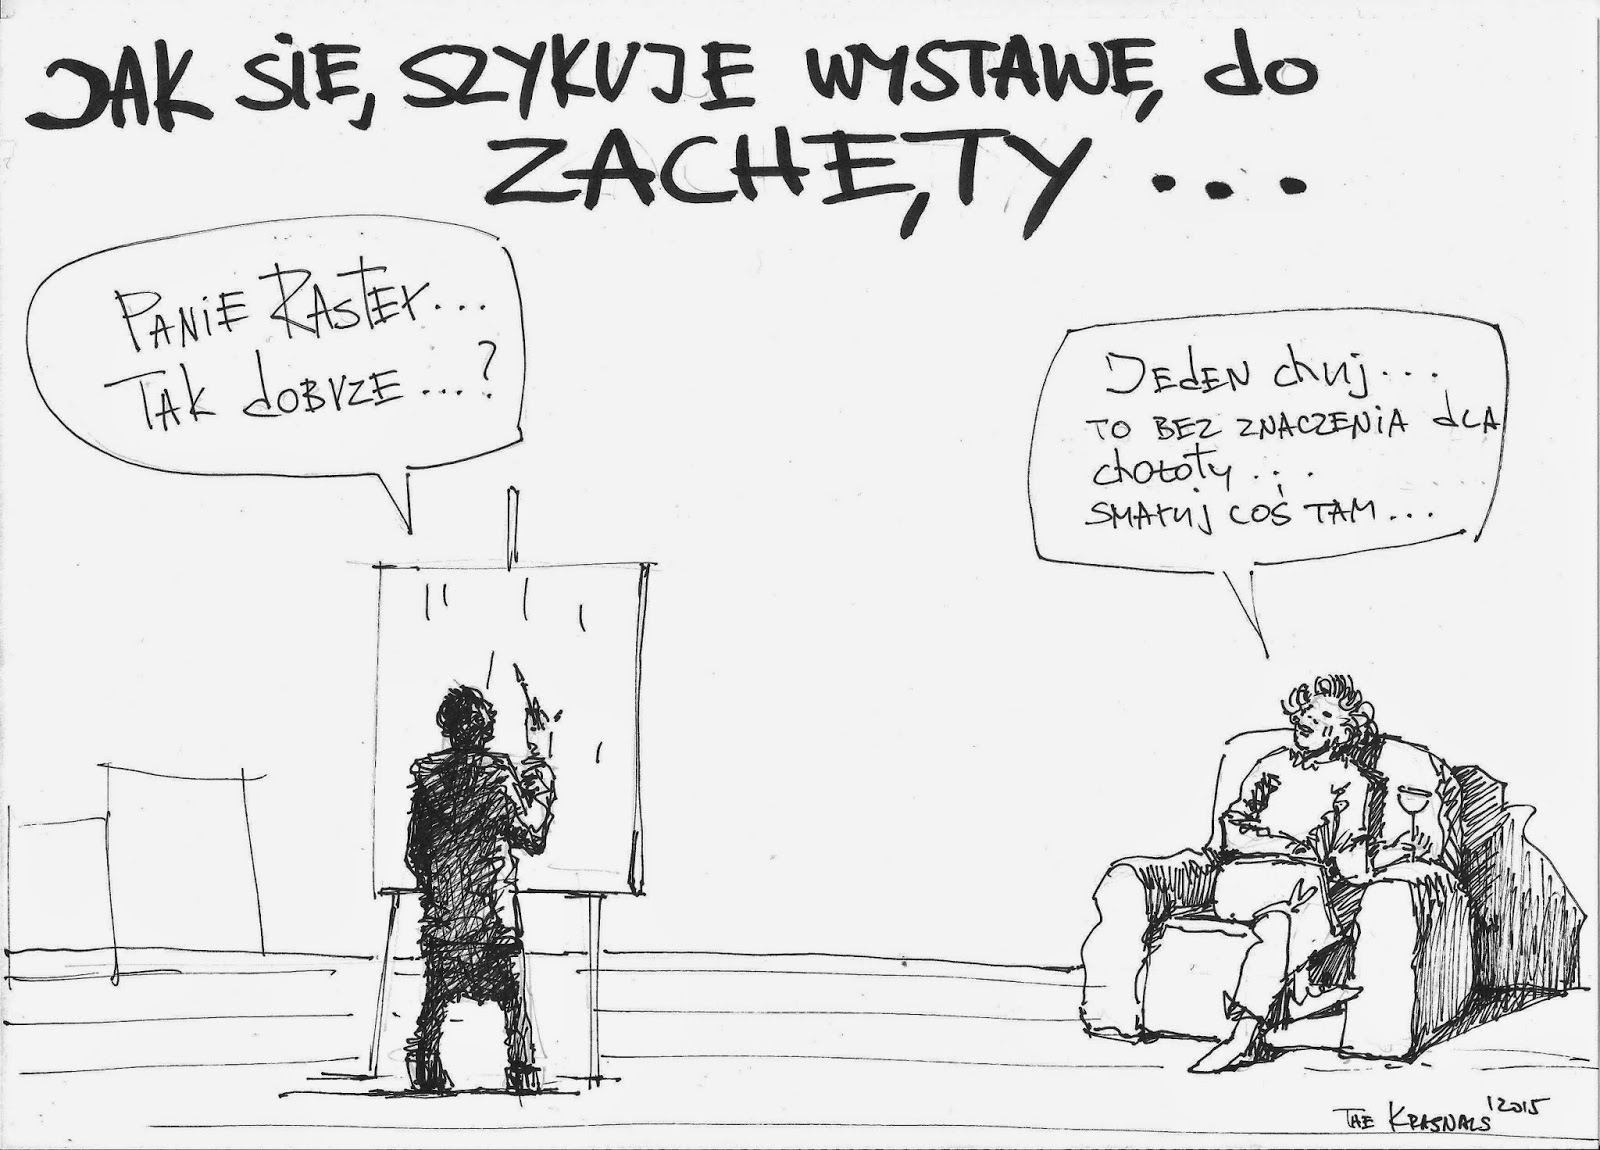 JAK SIĘ SZYKUJE WYSTAWĘ do
ZACHĘTY...
PANIE RASTER...
TAK dOBRZE...?
JEdEN chuj...
TO BEZ ZNACZENIA dLA
chołoty...
SMARuj COŚ TAM...
THE KRASNALS '2015